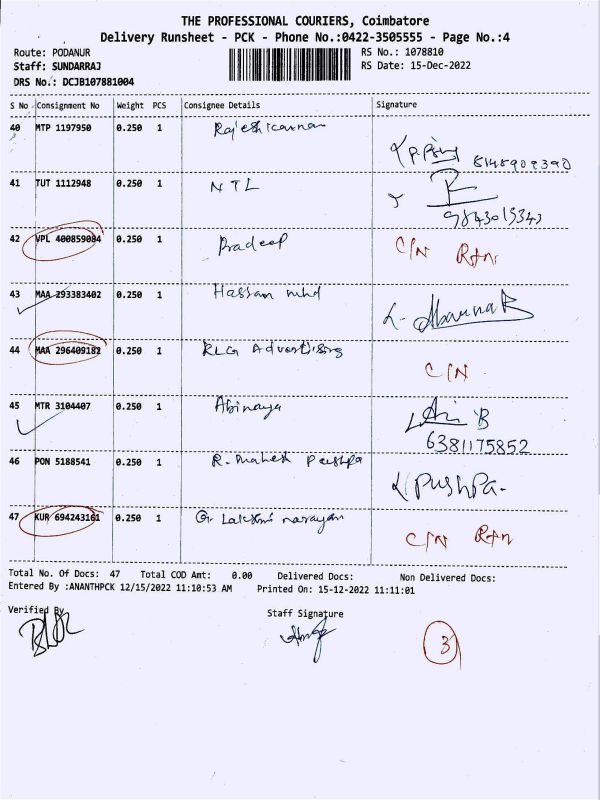 THE PROFESSIONAL COURIERS, Coimbatore
Delivery Runsheet - PCK - Phone No.:0422-3505555 - Page No.:4
Route: PODANUR RS No.: 1078810
Staff: SUNDARRAJ RS Date: 15-Dec-2022
DRS No.: DCJB107881004
S No Consignment No Weight PCS Consignee Details Signature
40 MTP 1197950 0.250 1 Rajeshkannan
41 TUT 1112948 0.250 1 NTL
9843015343
42 VPL 400859084 0.250 1 Pradeep C/N Rtn
43 MAA 293383402 0.250 1 Hassan mhd
44 MAA 296409182 0.250 1 RLG Advertising C/N
45 MTR 3104407 0.250 1 Abinaya
6381175852
46 PON 5188541 0.250 1 R. Mahesh Pushpa Pushpa.
47 KUR 694243161 0.250 1 G. Lakshmi narayan C/N Rtn
Total No. Of Docs: 47 Total COD Amt: 0.00 Delivered Docs: Non Delivered Docs:
Entered By :ANANTHPCK 12/15/2022 11:10:53 AM Printed On: 15-12-2022 11:11:01
Verified By Staff Signature
3